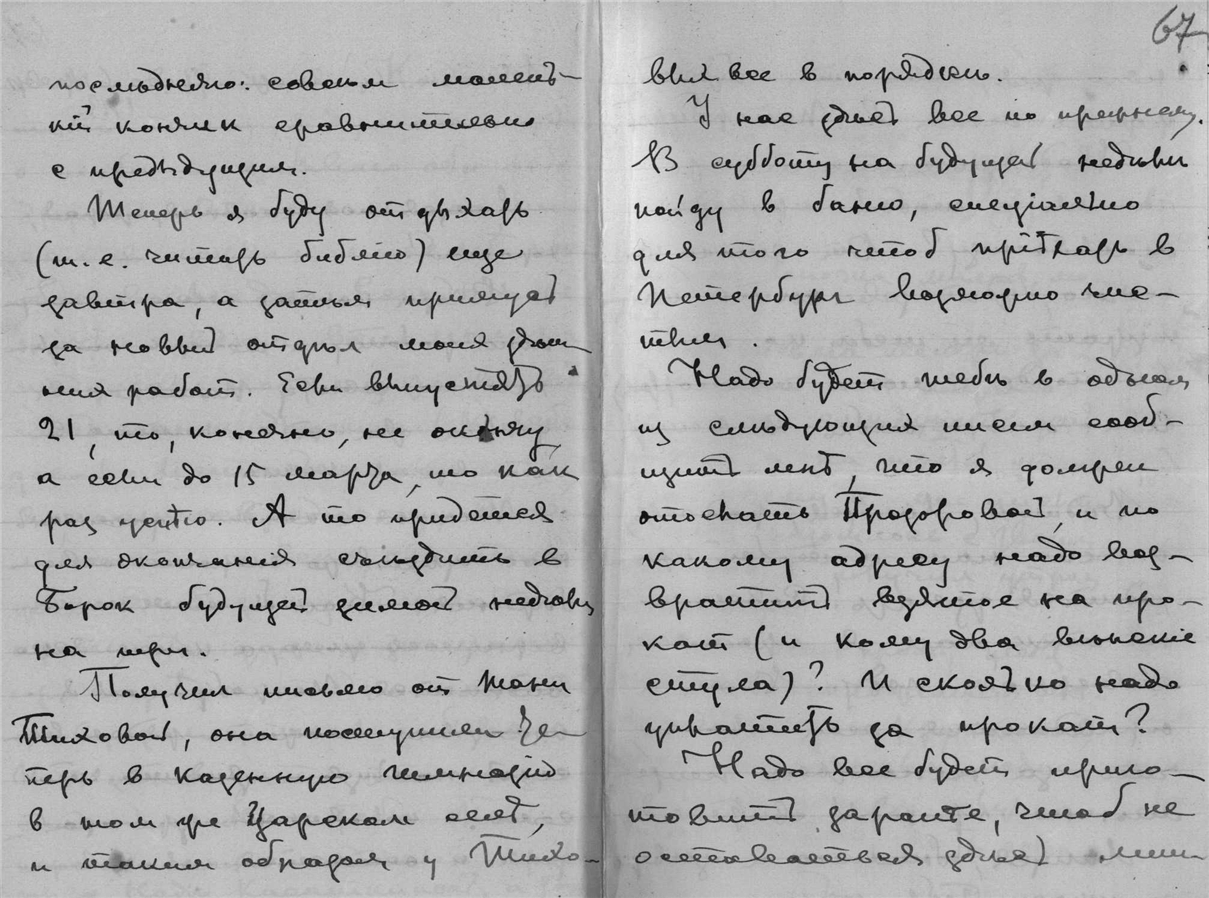 последнею: совсем малень-
кій кончик сравнительно
с предъидущим.
Теперь я буду отдыхать
(т. е. читать библію) еще
завтра, а затем примусь
за новый отдел моих
работ. Если выпустят
21, то, конечно, не окончу,
а если до 15 марта, то как
раз успею. А то придется
для окончанія съездить в
Борок будущей зимой недели
на три.
Получил письмо от Мани
Тиховой, она поступила те-
перь в казенную гимназію
в том же Царском селе,
и таким образом у Тихо-
67
вых все в порядке.
У нас здесь все по прежнему.
В субботу на будущей неделе
пойду в баню, спеціально
для того чтоб пріехать в
Петербург возможно чис-
тым.
Надо будет тебе в одном
из следующих писем сооб-
щить мне, что я должен
отослать Прозоровой, и по
какому адресу надо воз-
вратить взятое на про-
кат (и кому два венские
стула)? И сколько надо
уплатить за прокат?
Надо все будет приго-
товить заранее, чтоб не
оставаться здесь лиш-